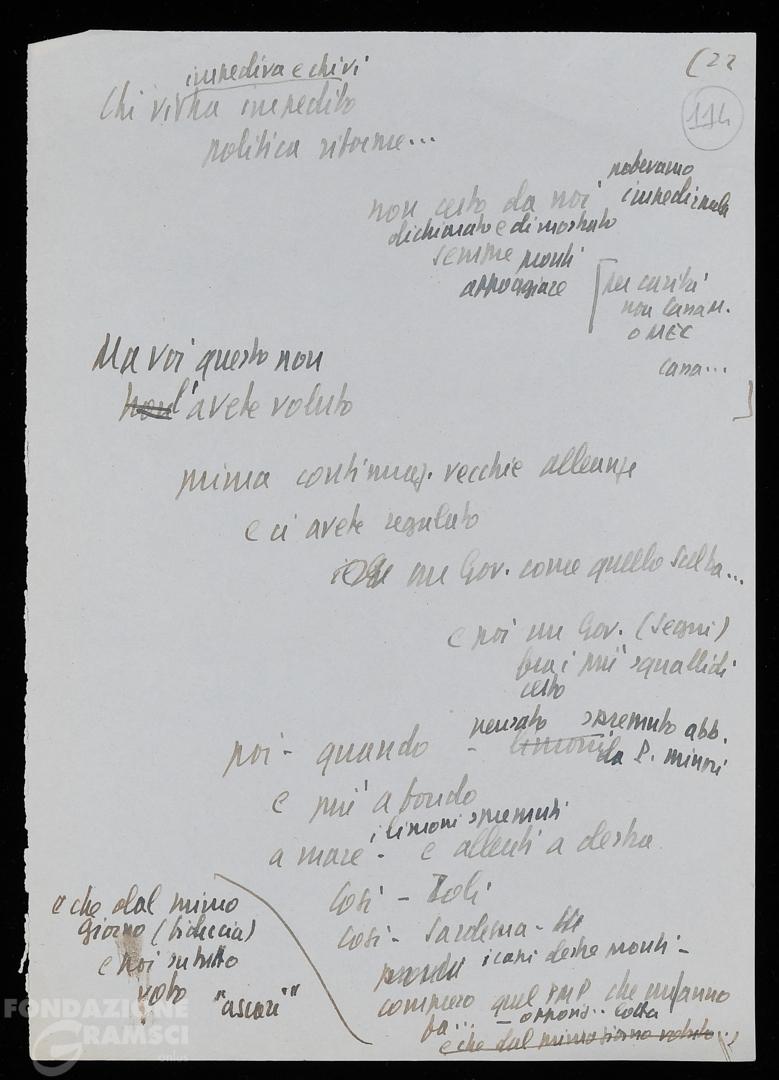 (22
114
impediva e chi vi
Chi vi ha impedito
politica riforme...
potevamo
non certo da noi impedirvela
dichiarato e dimostrato
sempre pronti
appoggiare
per carità
non Cassa M.
o MEC
cassa...
Ma voi questo non
non l'avete voluto
prima continuaz. vecchie alleanze
e ci avete regalato
un Gov. come quello Scelba...
e poi un Gov. (Segni)
fra i più squallidi
certo
pensato spremuto abb.
poi - quando - limoni da P. minori
e più a fondo
i limoni spremuti
a mare - e allenti a destra
Così - Zoli
Così - Sardegna -
pronti i cari destre monti -
compiero quel PMP che un anno
fa... - oppons.. lotta
e che dal primo giorno voluto...
e che dal primo
giorno (fiducia)
e poi subito
voto "ascari"
FONDAZIONE
GRAMSCI
onlus